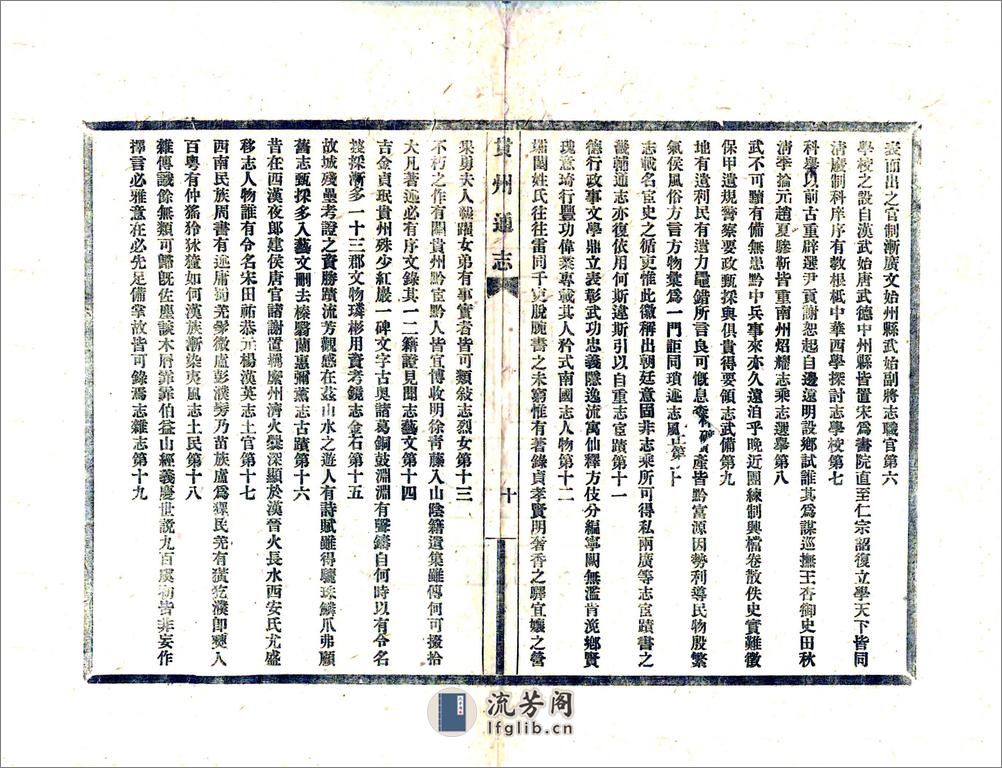 表而出之官制漸廣文始州縣武始副將志職官第六
學校之設自漢武始唐武德中州縣皆置宋爲書院直至仁宗詔復立學天下皆同
清嚴制科庠序有教根柢中華西學探討志學校第七
科舉以前古重辟選尹貢謝恕起自邊遠明設鄉試誰其爲謀巡撫王杏御史田秋
清季掄元趙夏驂靳皆重南州焜耀志乘志選舉第八
武不可黷有備無患黔中兵事來亦久遠泊乎晚近團練制興檔卷散佚史實難徵
保甲遺規警察要政甄採與俱貴得要領志武備第九
地有遺利民有遺力鼂錯所言良可慨息 產皆黔富源因勢利導民物殷繁
氣侯風俗方言方物彙爲一門詎同瑣述志風土第十
志載名宦史之循吏惟此徽稱出朝廷意固非志乘所可得私兩廣等志宦蹟書之
畿輔通志亦復依用何斯違斯引以自重志宦蹟第十一
德行政事文學鼎立表彰武功忠義隱逸流寓仙釋方伎分編寧闕無濫肯浼鄉賢
瑰意琦行豐功偉業專載其人矜式南國志人物第十二
壎闓姓氏往往雷同千兔脫腕書之未窮惟有著錄貞孝賢明奢香之驛宜孃之營
貴州通志
十
果勇夫人戰蹟女弟有事實者皆可類敍志烈女第十三
不朽之作有關貴州黔宦黔人皆宜博收明徐青藤入山陰籍遺集雖傳何可掇拾
大凡著述必有序文錄其一二籍證見聞志藝文第十四
吉金貞珉貴州殊少紅巖一碑文字古奧諸葛銅鼓淵淵有聲鑄自何時以有令名
蒐採漸多一十三郡文物璘彬用資考鏡志金石第十五
故城殘壘考證之資勝蹟流芳觀感在茲山水之遊人有詩賦雖得驪珠鱗爪弗顧
舊志甄採多入藝文刪去榛翳蘭蕙彌薰志古蹟第十六
昔在西漢夜郎建侯唐官諮謝置羈縻州濟火爨深顯於漢晉火長水西安氏尤盛
移志人物誰有令名宋田祐恭元楊漢英志土官第十七
西南民族周書有述庸蜀羌髳微盧彭濮髳乃苗族盧爲玀民羌有獚犵濮卽僰人
百粵有仲猺狑狇獞如何漢族漸染夷風志土民第十八
雜傳譏餘無類可歸既佐麈談木屑霏霏伯益山經義慶世說九百虞初皆非妄作
擇言必雅意在必先足備掌故皆可錄焉志雜志第十九
流芳阁
lfglib.cn